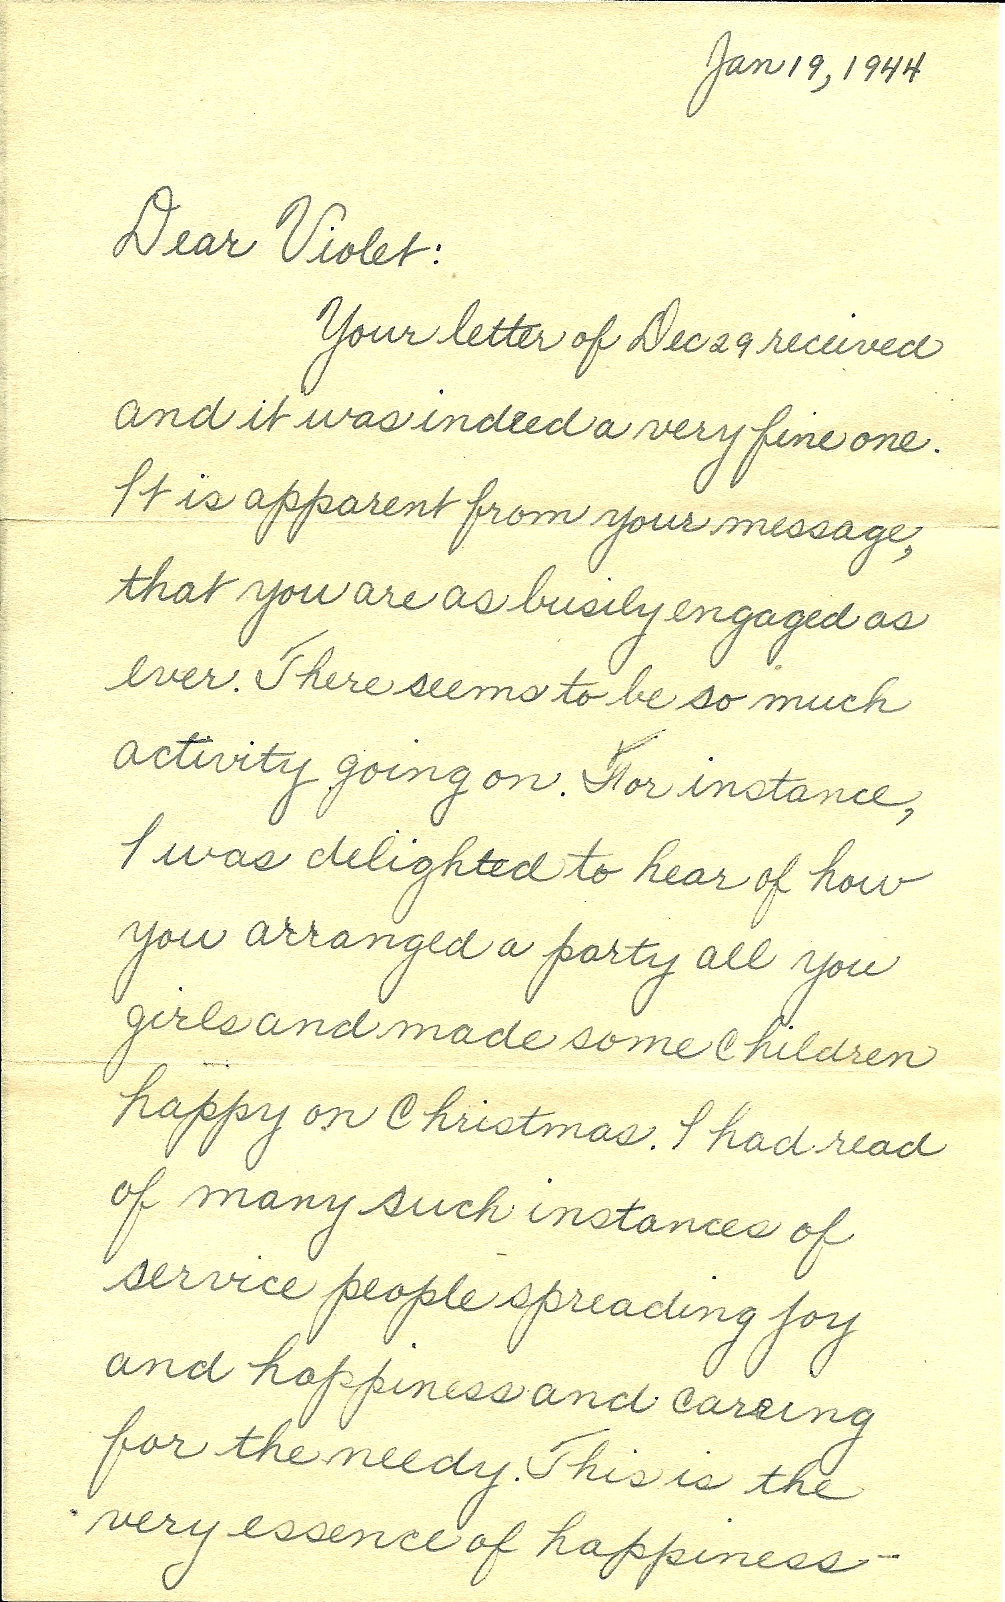 Jan 19, 1944
Dear Violet:
Your letter of Dec 29 received
and it was indeed a very fine one.
It is apparent from your message,
that you are as busily engaged as
ever. There seems to be so much
activity going on. For instance,
I was delighted to hear of how
you arranged a party all you
girls and made some children
happy on Christmas. I had read
of many such instances of
service people spreading joy
and happiness and careing
for the needy. This is the
very essence of happiness -